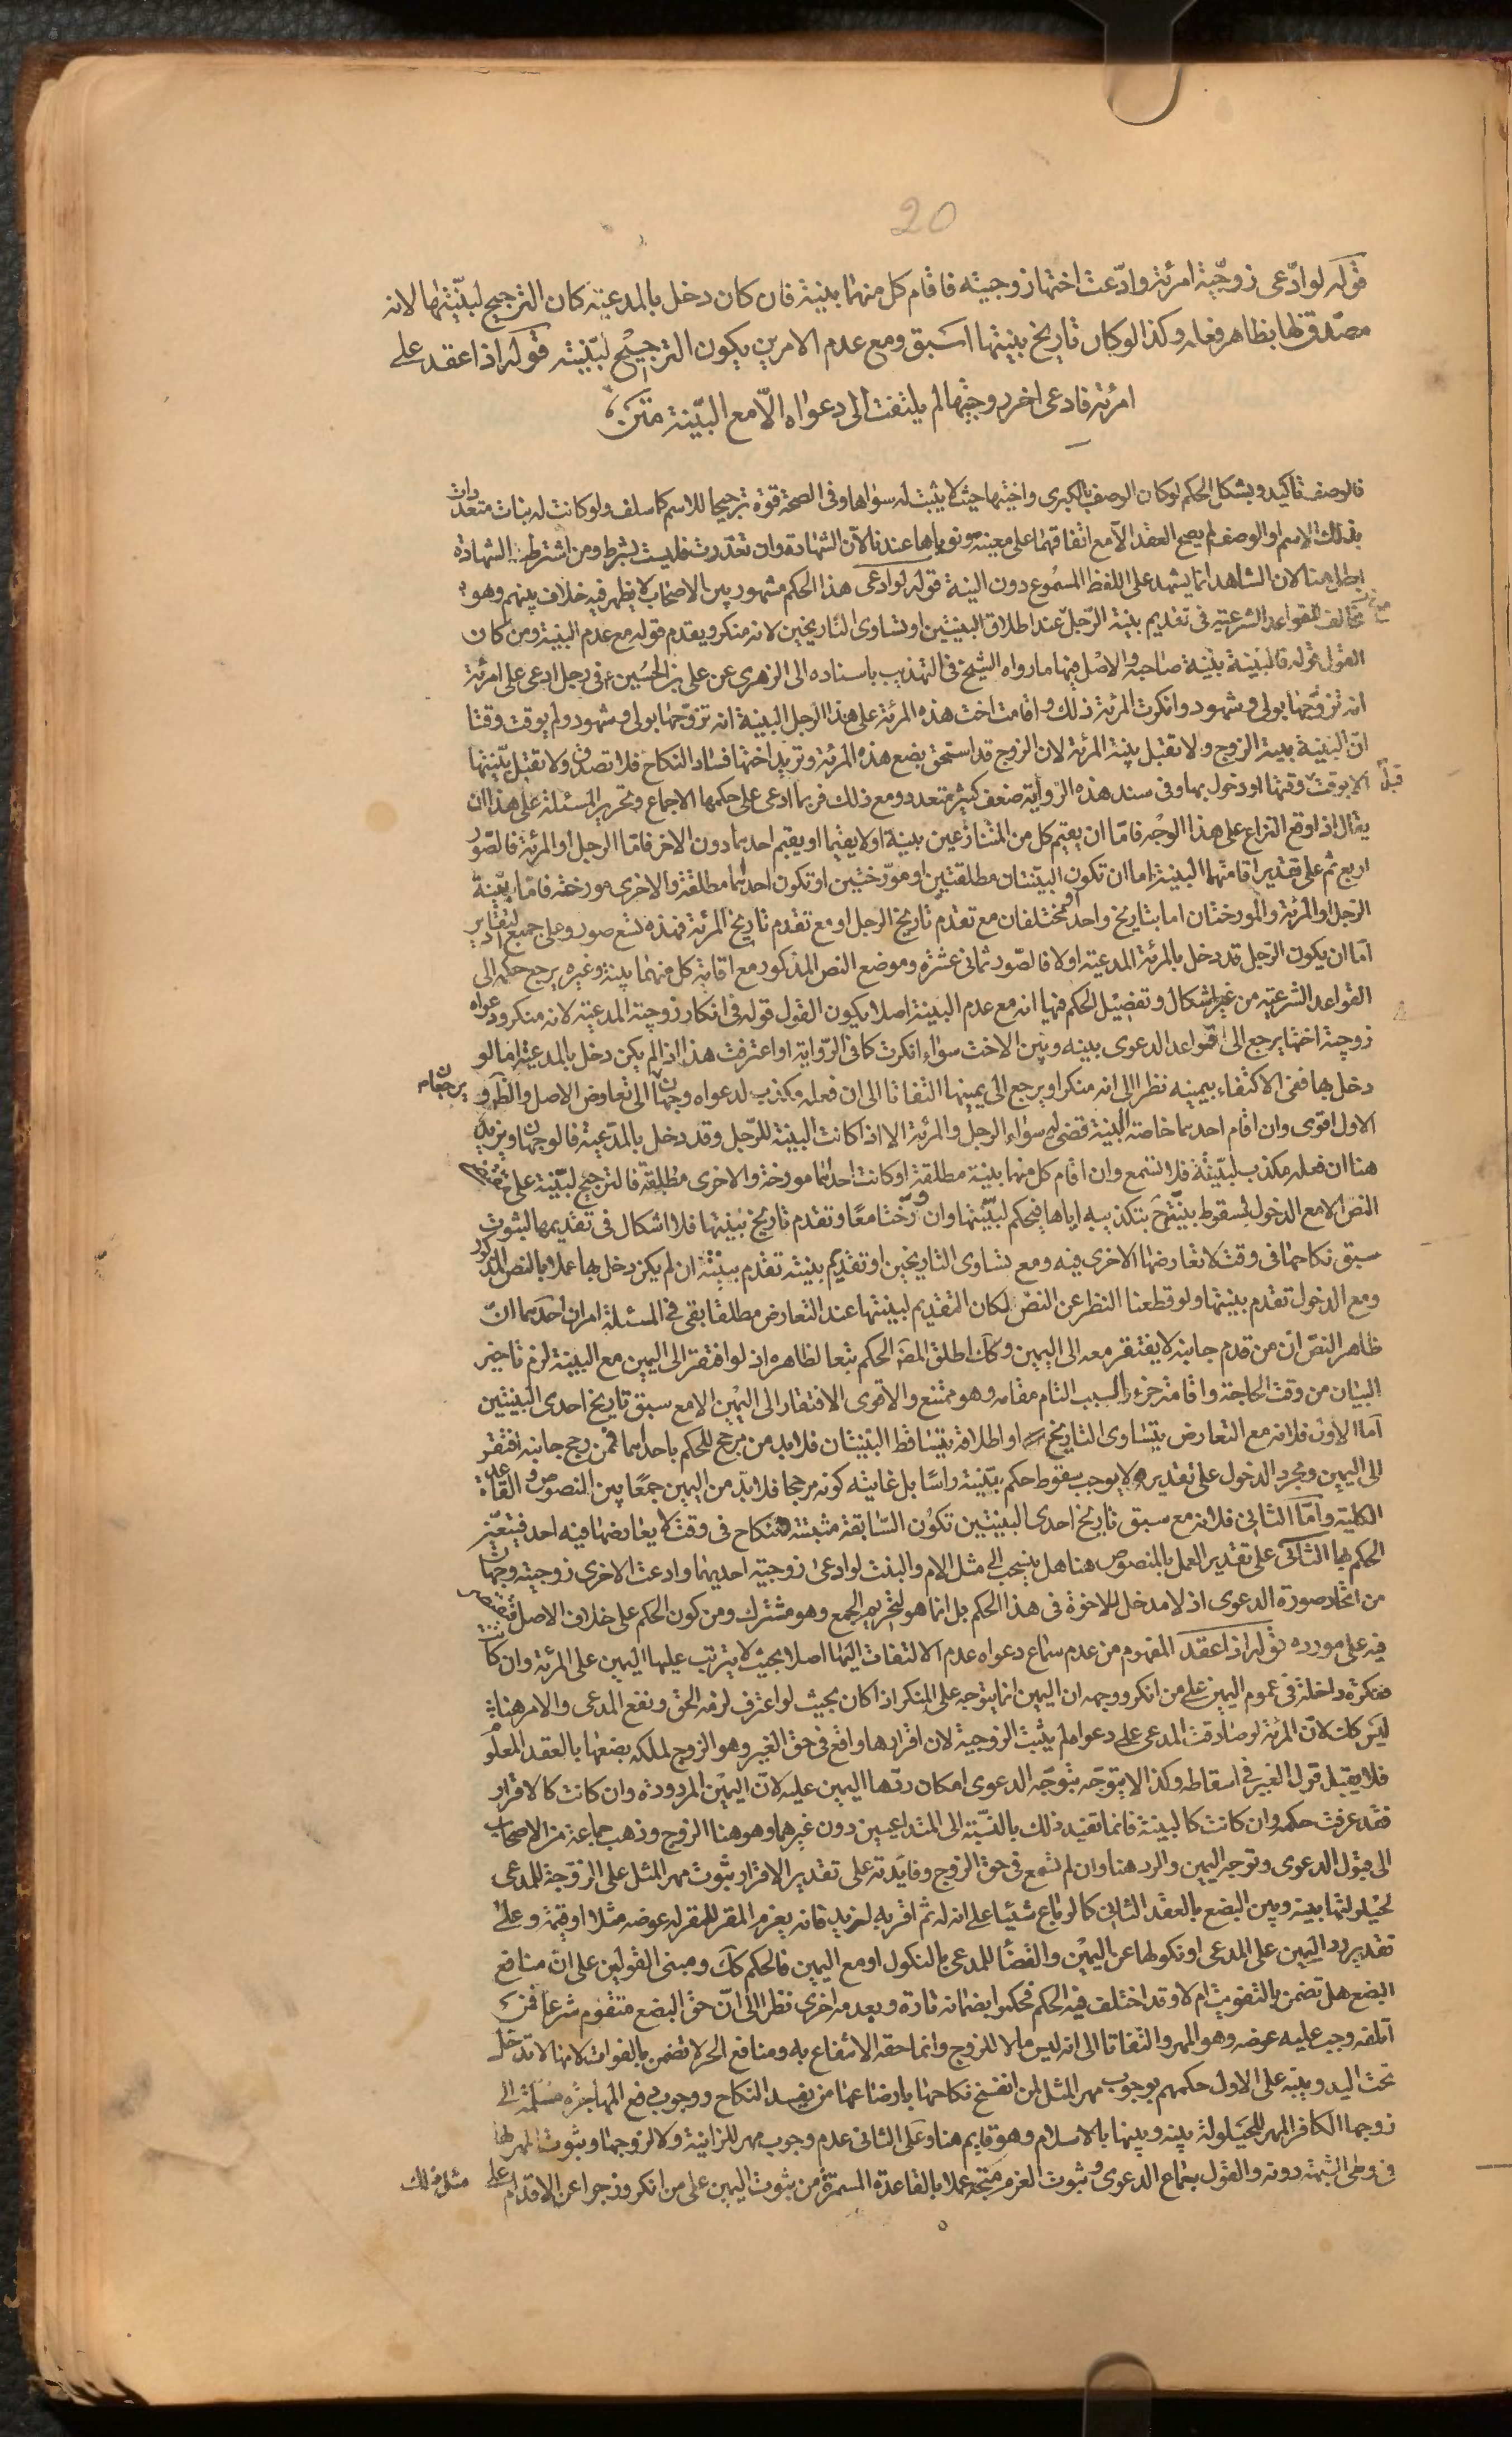 20
قوله لو ادّعى زوجيّة امرئة وادّعت اختها زوجيته فاقام كل منهما بينة فان كان دخل بالمدعية كان الترجيح لبيّنتها لانه
مصدق لها بظاهر فعله وكذا لو كان تاريخ بينتها اسبق ومع عدم الامرين يكون الترجيح لبيّنته قوله اذا عقد على
امرئة فادعى اخر زوجيتها لم يلتفت الى دعواه الّا مع البيّنة متن
فالوصف تأكيد ويشكل الحكم لو كان الوصف بالكبرى واختها حيث لا يثبت له سواها وفى الصحة قوة ترجيحا للاسم كما سلف ولو كانت له بنات متعددات
بذلك الاسم او الوصف لم يصح العقد الّا مع اتفاقهما على معينة ونوياها عندنا لانّ الشهادة وان تعذرت فليست بشرط ومن اشترط الشهادة
ابطل هنا لان الشاهد انما يشهد على اللفظ المسموع دون النية قوله لو ادعى هذا الحكم مشهور بين الاصحاب لا يظهر فيه خلاف بينهم وهو
مخالف للقواعد الشرعية فى تقديم بينة الرّجل عند اطلاق البينتين او تساوى التاريخين لانه منكر ويقدم قوله مع عدم البينة ومن كان
القول قوله فالبينة بينة صاحبه والاصل فيها ما رواه الشيخ فى التهذيب باسناده الى الزهرى عن على بن الحسين ع فى رجل ادعى على امرئة
انه تزوّجها بولى وشهود وانكرت المرئة ذلك واقامت اخت هذه المرئة على هذا الرجل البينة انه تزوّجها بولى وشهود ولم يوقت وقتا
انّ البينة بينة الزوج ولا تقبل بينة المرئة لان الزوج قد استحق بضع هذه المرئة وتريد اختها فساد النكاح فلا تصدق ولا تقبل بيّنتها
الا بوقت قبل وقتها او دخول بها وفى سند هذه الرّواية ضعف كثير متعدد ومع ذلك فربما ادعى على حكمها الاجماع وتحرير المسئلة على هذا ان
يقال اذا وقع النزاع على هذا الوجه فامّا ان يقيم كل من المتنازعين بينة او لا يقيما او يقيم احدهما دون الاخر فامّا الرجل او المرئة فالصّور
اربع ثم على تقدير اقامتهما البينة اما ان تكون البيّنتان مطلقتين او مورّختين او تكون احداهما مطلقة والاخرى مورخة فامّا بيّنة
الرّجل او المرئة والمورختان اما بتاريخ واحد او مختلفان مع تقدم تاريخ الرجل او مع تقدم تاريخ المرئة فهذه تسع صور وعلى جميع التقادير
امّا ان يكون الرّجل قد دخل بالمرئة المدعية او لا فالصّور ثمانى عشرة وموضع النص المذكور مع اقامة كل منهما بينة وغيره يرجع حكمه الى
القواعد الشرعية من غير اشكال وتفصيل الحكم فيها انه مع عدم البينة اصلا يكون القول قوله فى انكار زوجية المدعية لانه منكر ودعواه
زوجية اختها يرجع الى قواعد الدعوى بينه وبين الاخت سواء انكرت كما فى الرّواية او اعترفت هذا اذا لم يكن دخل بالمدعية اما لو
دخل بها ففى الاكتفاء بيمينه نظرا الى انه منكر او يرجع الى يمينها التفاتا الى ان فعله مكذب لدعواه وجهان يرجعان الى تعارض الاصل والظهور
الاول اقوى وان اقام احدهما خاصة البينة قضى له سواء الرجل والمرئة الا اذا كانت البينة للرّجل وقد دخل بالمدّعية فالوجهان ويزيد
هنا ان فعله مكذب لبيّنته فلا تسمع وان اقام كل منهما بينة مطلقة او كانت احداهما مورخة والاخرى مطلقة فالترجيح لبيّنته على مقتضى
النص الا مع الدخول لسقوط بيّنته ح بتكذيبه اياها فيحكم لبيّنتها وان ورّختا معا وتقدم تاريخ بينتها فلا اشكال فى تقديمها لثبوت
سبق نكاحها فى وقت لا تعارضها الاخرى فيه ومع تساوى التاريخين او تقديم بينته تقدم بيّنته ان لم يكن دخل بها عملا بالنص المذكور
ومع الدخول تقدم بينتها ولو قطعنا النظر عن النص لكان التقديم لبينتها عند التعارض مطلقا بقى فى المسئلة امران احدهما انّ
ظاهر النصّ انّ من قدم جانبه لا يفتقر معه الى اليمين وكك اطلق المصَ الحكم تبعا لظاهره اذ لو افتقر الى اليمين مع البينة لزم تاخير
البيان من وقت الحاجة واقامة جزء السبب التام مقامه وهو ممتنع والاقوى الافتقار الى اليمين الا مع سبق تاريخ احدى البينتين
امّا الاوّل فلانه مع التعارض بتساوى التاريخ او اطلاقه يتساقط البينتان فلا بد من مرجح للحكم باحداهما فمن رجح جانبه افتقر
الى اليمين ومجرد الدخول على تقديره لا يوجب سقوط حكم بيّنته راسًا بل غايته كونه مرجحا فلا بدّ من اليمين جمعًا بين النصوص والقاعدة
الكلية وامّا الثانى فلانه مع سبق تاريخ احدى البينتين تكون السّابقة مثبتة لنكاح فى وقت لا يعارضها فيه احد فيتعيّن
الحكم بها الثانى على تقدير العمل بالمنصوص هنا هل ينسحب الى مثل الام والبنت لو ادعى زوجيّة احديهما وادعت الاخرى زوجيته وجهان
من اتحاد صورة الدعوى اذ لا مدخل للاخوة فى هذا الحكم بل انما هو لتحريم الجمع وهو مشترك ومن كون الحكم على خلاف الاصل فيقتصر
فيه على مورده قوله اذا عقد المفهوم من عدم سماع دعواه عدم الالتفات اليها اصلا بحيث لا يترتب عليها اليمين على المرئة وان كانت
منكرة داخلة فى عموم اليمين على من انكر ووجهه ان اليمين انما يتوجه على المنكر اذا كان بحيث لو اعترف لزمه الحق ونفع المدعى والامر هنا
ليس كك لانّ المرئة لو صادقت المدعى على دعواه لم يثبت الزوجية لان اقرارها واقع فى حق الغير وهو الزوج لملكه بضعها بالعقد المعلوم
فلا يقبل قول الغير فى اسقاطه وكذا لا يتوجّه بتوجّه الدعوى امكان ردّها اليمين عليه لانّ اليمين المردودة وان كانت كالاقرار
فقد عرفت حكمه وان كانت كالبينة فانما تفيد ذلك بالنسبة الى المتداعيين دون غيرهما وهو هنا الزوج وذهب جماعة من الاصحاب
الى قبول الدعوى وتوجه اليمين والرد هنا وان لم تسمع فى حق الزوج وفايدته على تقدير الاقرار ثبوت مهر المثل على الزوجة للمدعى
لحيلولتها بينه وبين البضع بالعقد الثانى كما لو باع شيئا على انه له ثم اقر به لزيد فانه يغرم المقر للمقر له عوضه مثلا او قيمة وعلى
تقدير رد اليمين على المدعى او نكولها عن اليمين والقضا للمدعى بالنكول او مع اليمين فالحكم كك ومبنى القولين على ان منافع
البضع هل تضمن بالتفويت ام لا وقد اختلف فيه الحكم فحكموا بضمانه تارة وبعدمه اخرى نظرا الى انّ حق البضع متقوم شرعا فمن
اتلفه وجب عليه عوضه وهو المهر والتفاتا الى انه ليس مالا للزوج وانما حقه الانتفاع به ومنافع الحر لا تضمن بالفوات لانها لا تدخل
تحت اليد وينبّه على الاول حكمهم بوجوب مهر المثل لمن انفسخ نكاحها بارضاعها من يفسد النكاح ووجوب دفع المهاجرة مسلمة الى
زوجها الكافر المهر للحيلولة بينه وبينها بالاسلام وهو قايم هنا وعلى الثانى عدم وجوب مهر للزانية ولا لزوجها وثبوت المهر لها
فى وطى الشبهة دونه والقول بسماع الدعوى وثبوت الغرم متجه عملا بالقاعدة المستمرة من ثبوت اليمين على من انكر وزجرا عن الاقدام على
مثل ذلك